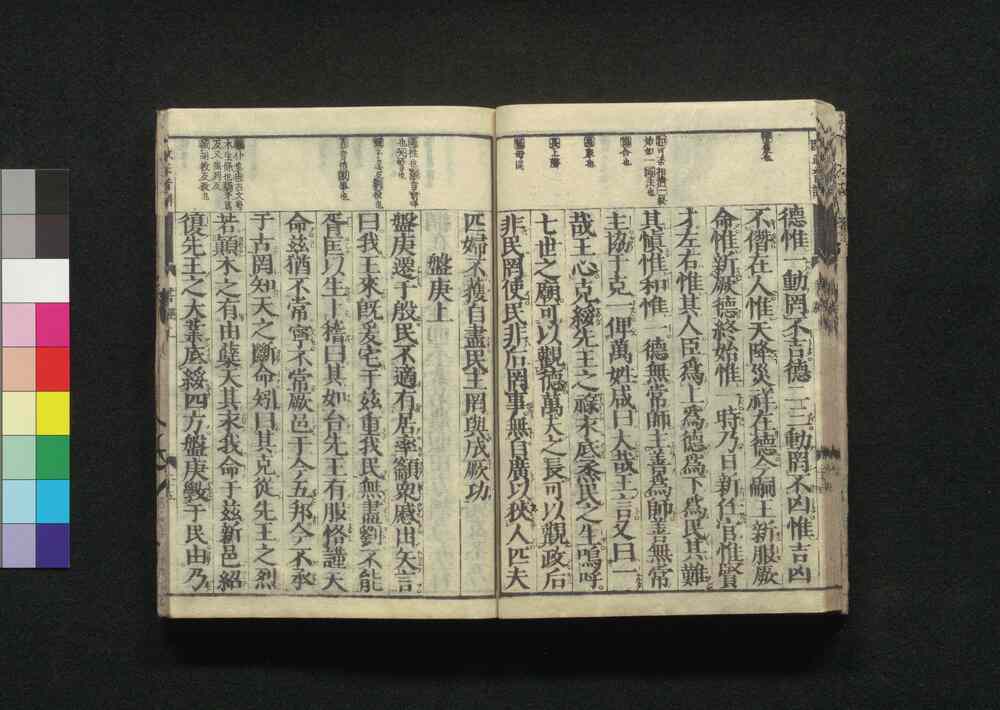 德惟一動罔不吉德二三動罔不凶惟吉凶
不僭在人惟天降災祥在德今嗣王新服厥
命惟新厥德終始惟一時乃日新任官惟賢
才左右惟其人臣爲上爲德爲下爲民其難
其愼惟和惟一德無常師主善爲師善無常
主協于克一俾萬姓咸曰大哉王言又曰一
哉王心克綏先王之祿永底烝民之生嗚呼
七世之廟可以觀德萬夫之長可以觀政后
非民罔使民非后罔事無自廣以狹人匹夫
匹婦不獲自盡民主罔與成厥功
盤庚上
盤庚遷于殷民不適有居率籲衆慼出矢言
曰我王來旣爰宅于茲重我民無盡劉不能
胥匡以生卜稽曰其如台先王有服恪謹天
命茲猶不常寧不常厥邑于今五邦今不承
于古罔知天之斷命矧曰其克從先王之烈
若顚木之有由蘖天其永我命于茲新邑紹
復先王之大業底綏四方盤庚斆于民由乃